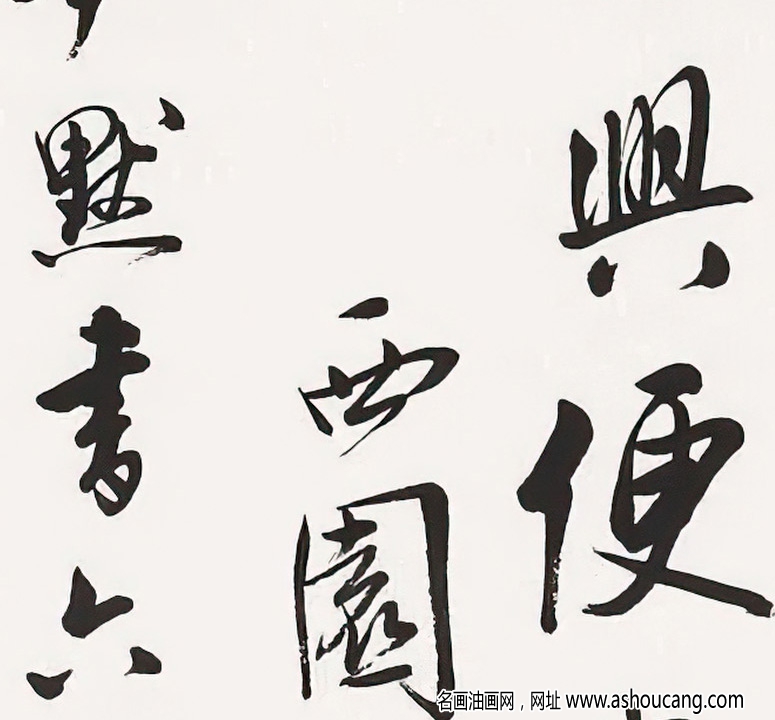 興便
西園
默書六
名画油画网，网址 www.ashoucang.com